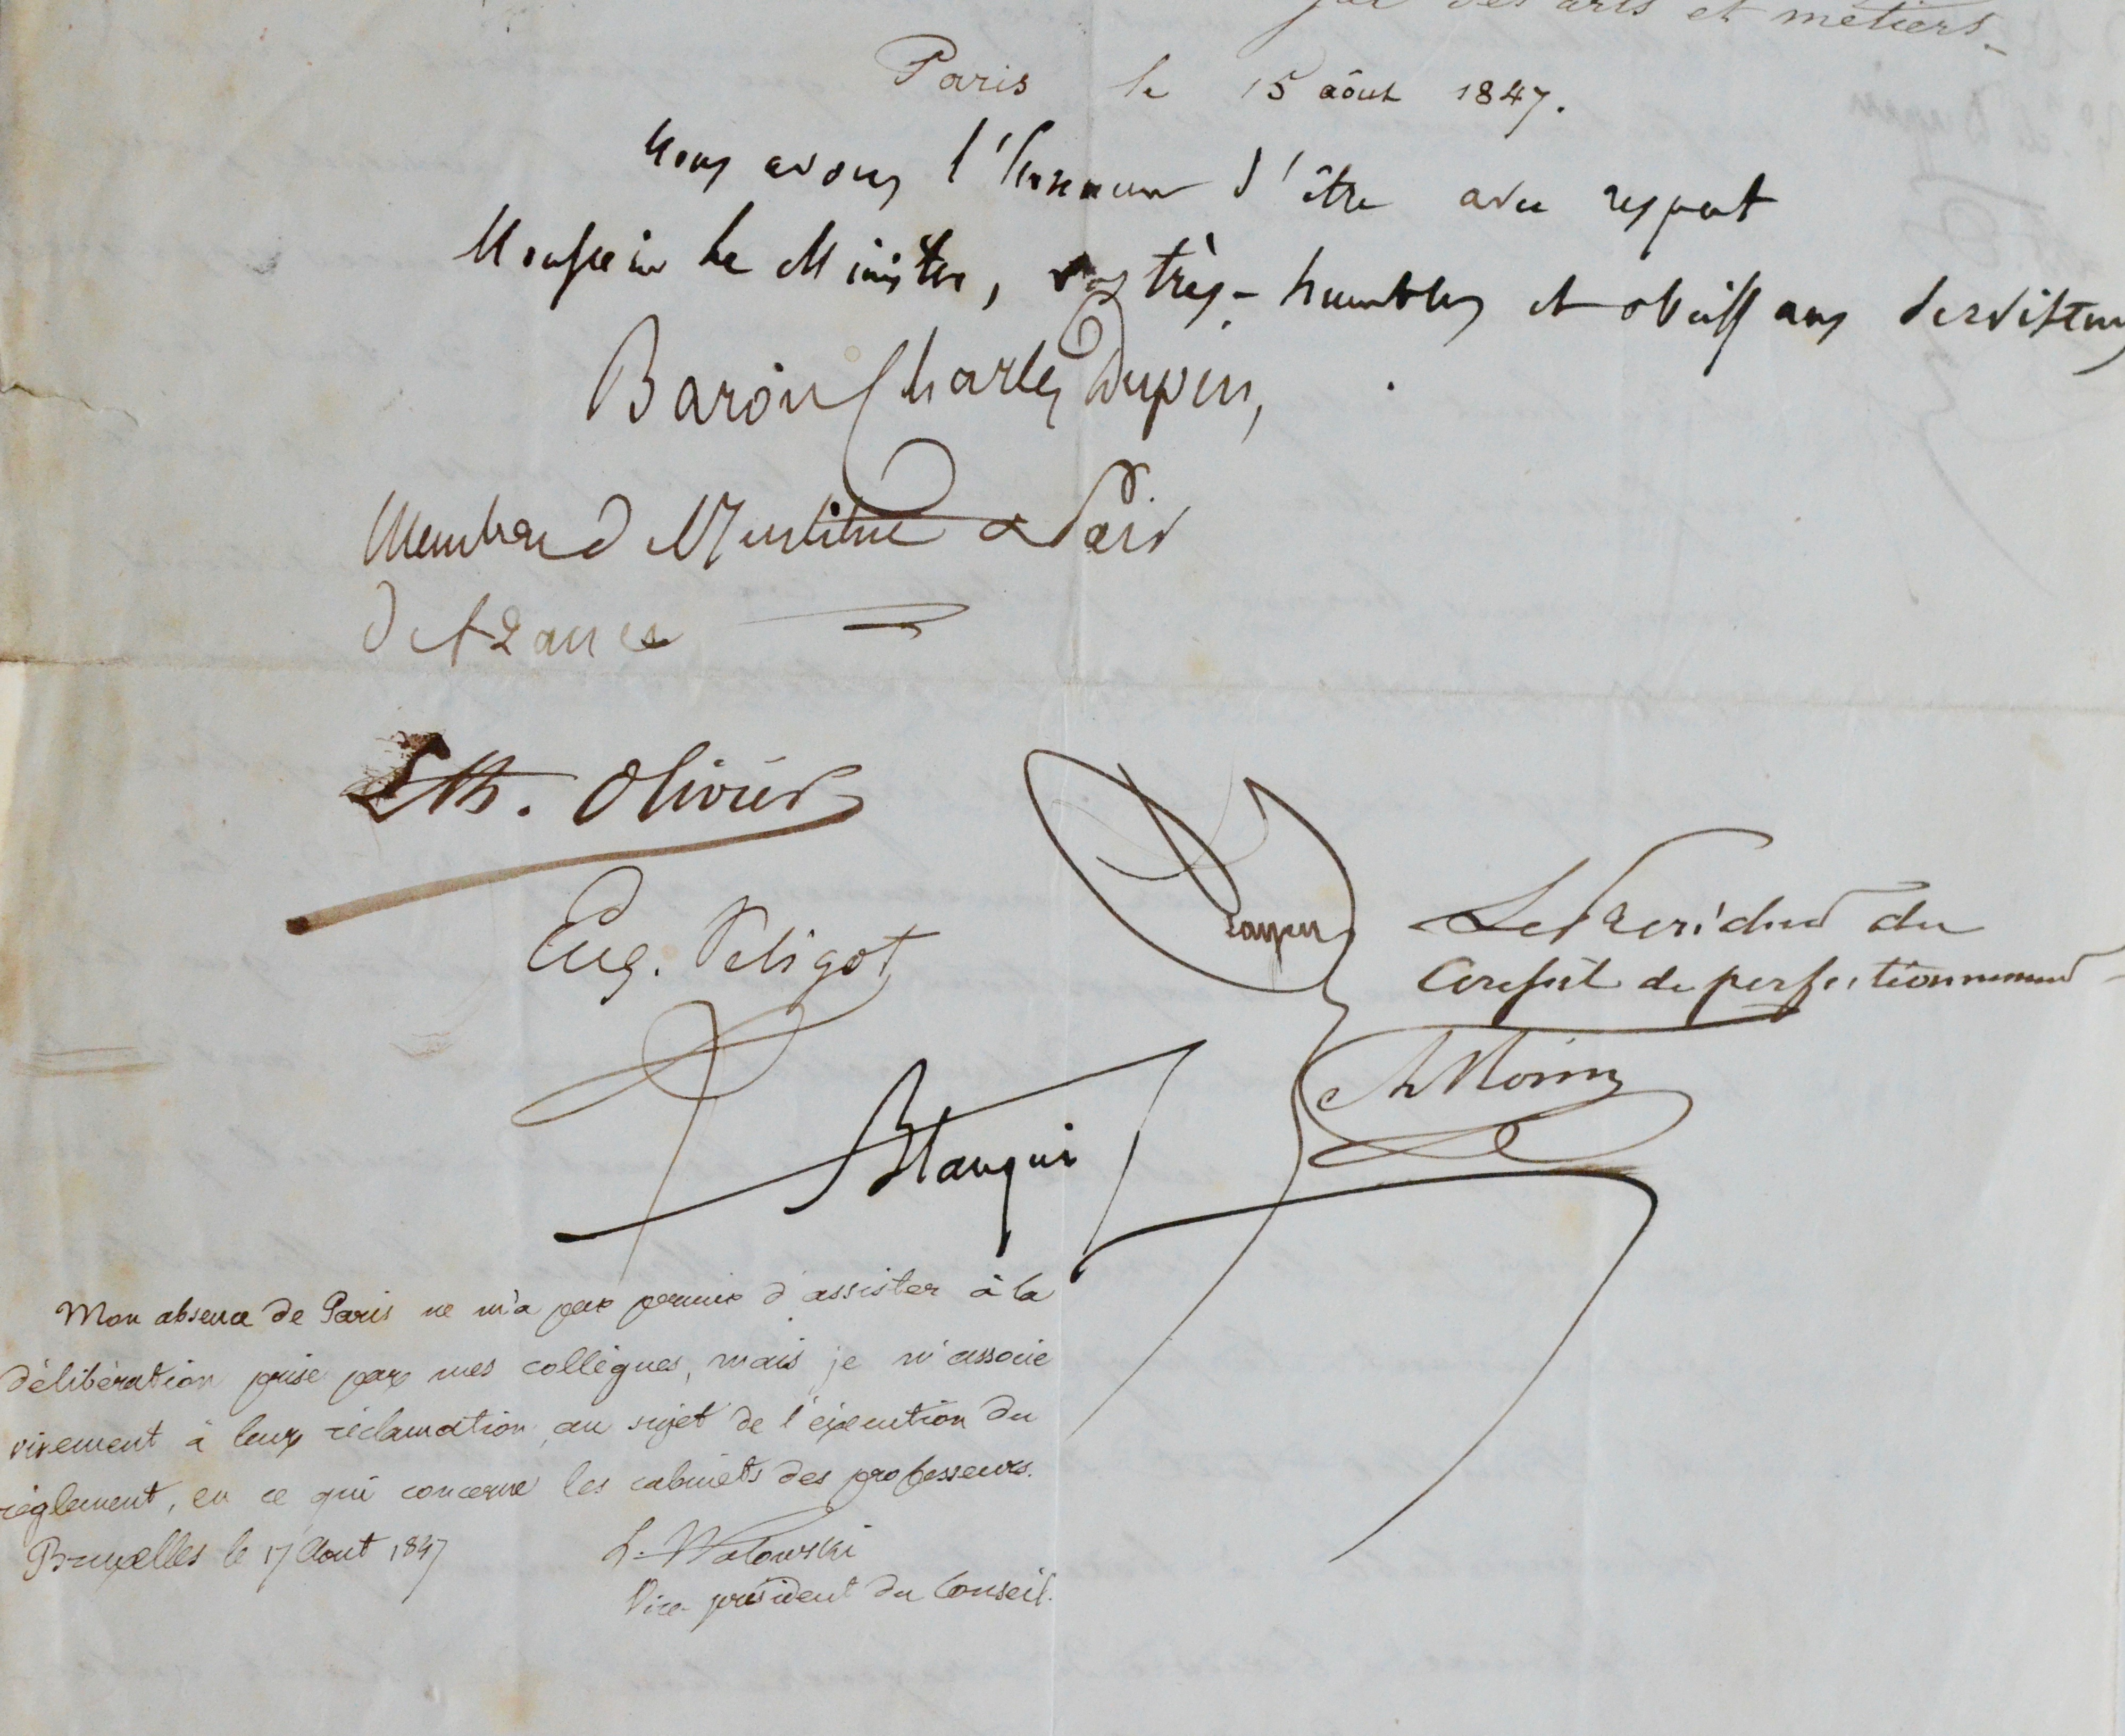 des arts et métiers.
Paris le 15 aôut 1847.
Nous avons l'honneur d'être avec respect
Monsieur le Ministre, vos très-humbles et obéissans serviteurs
Baron Charles Dupin,
Membre de l'Institut & Pair
de France
Th. Olivier
Eug. Peligot
Payen
Le Président du
Conseil de perfectionnement
A. Morin
Blanqui
Mon absence de Paris ne m'a pas permis d'assister à la
délibération prise par mes collègues, mais je m'associe
vivement à leur réclamation au sujet de l'éxecution du
règlement, en ce qui concerne les cabinets des professeurs.
Bruxelles le 17 Aout 1847
L. Wolowski
Vice-président du Conseil.